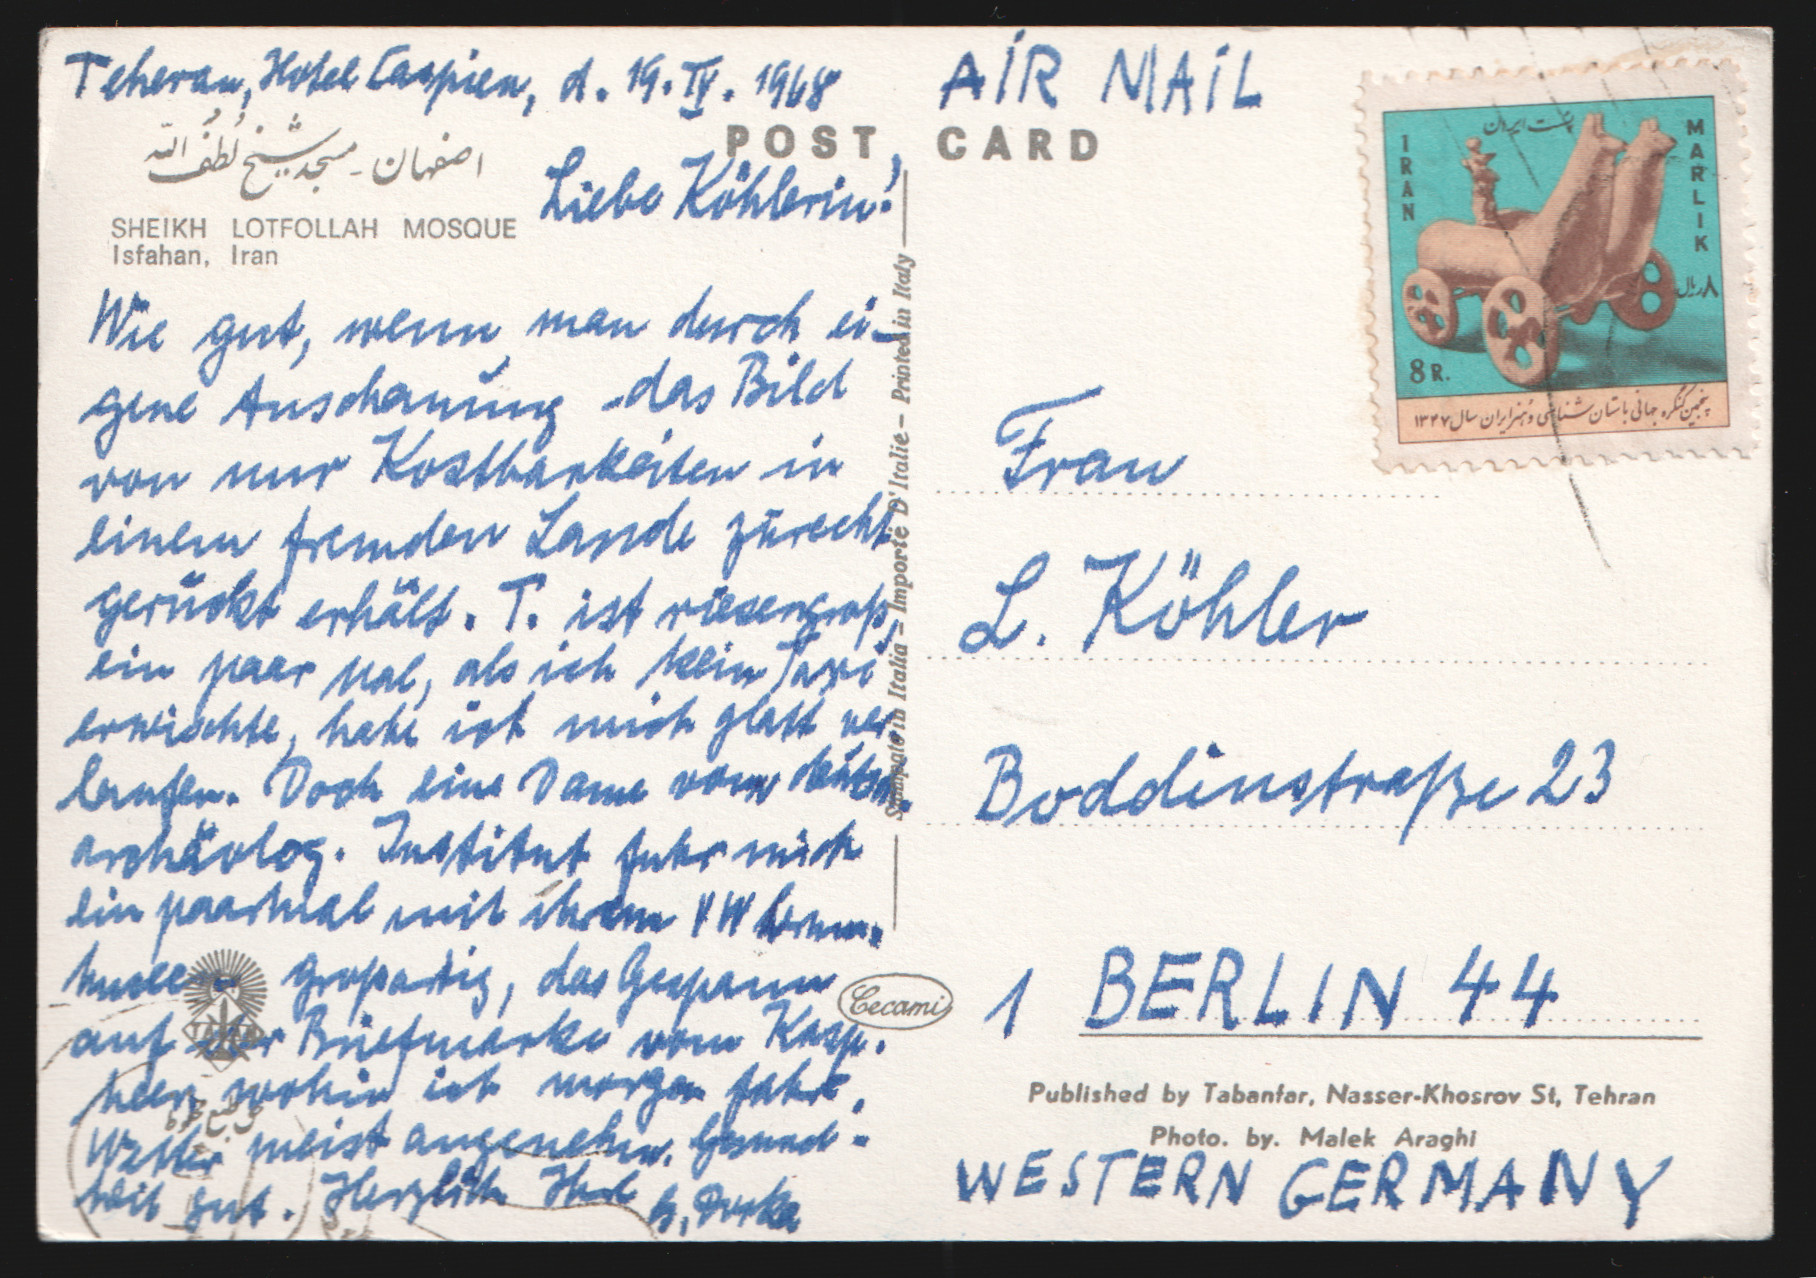 Teheran, Hotel Caspien, d. 19. IV. 1968
اصفهان - مسجد شیخ لطف الله
SHEIKH LOTFOLLAH MOSQUE
Isfahan, Iran
Liebe Köhlerin!
Wie gut, wenn man durch ei-
gene Anschauung das Bild
von nur Kostbarkeiten in
einem fremden Lande zurecht
gerückt erhält. T. ist riesengroß,
ein paar Mal, als ich kein Taxi
erwischte, habe ich mich glatt ver
laufen. Doch eine Dame vom deutsch.
archäolog. Institut fuhr mich
ein paarmal mit ihrem VW herum.
Museen großartig, das Gespann
auf der Briefmarke vom Kasp.
Meer wohin ich morgen fahre.
Wetter meist angenehm. Gesund-
heit gut. Herzlich Ihre
POST CARD
Stampato in Italia - Importé D'Italie - Printed in Italy
Cecami
AIR MAIL
پست ایران
IRAN
MARLIK
۸ ریال
8 R.
پنجمین کنگره جهانی باستان شناسی و هنر ایران سال ۱۳۴۷
Frau
L. Köhler
Boddinstraße 23
1 BERLIN 44
Published by Tabanfar, Nasser-Khosrov St, Tehran
Photo. by. Malek Araghi
WESTERN GERMANY